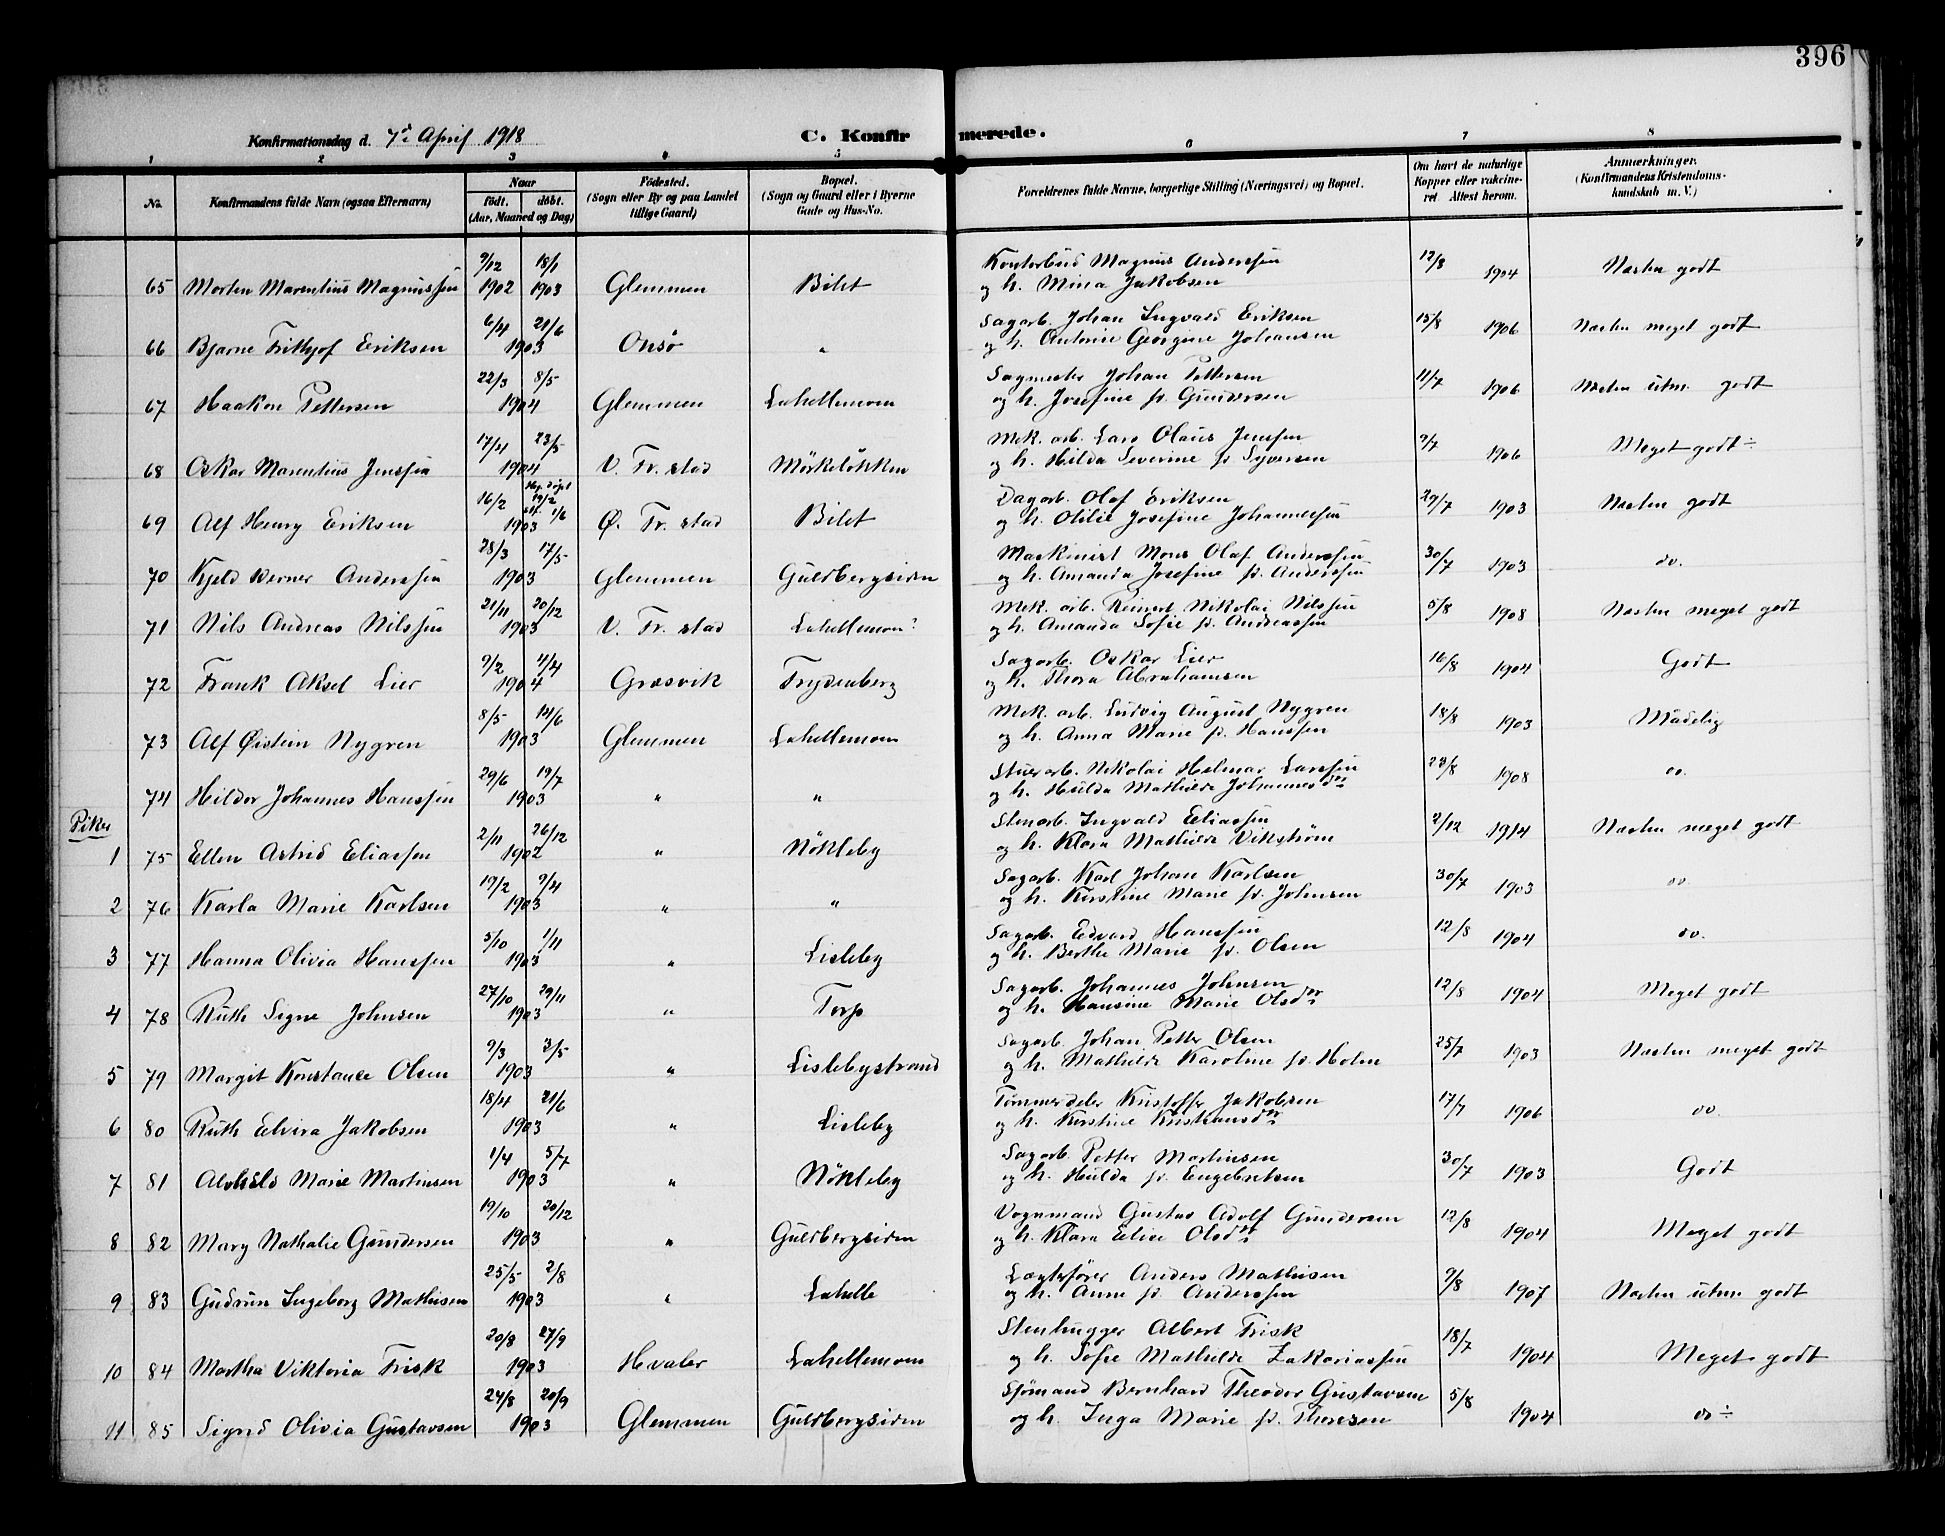 396
Konfirmationsdag d. 7de April 1918
C. Konfirmerede.
1 2 3 4 5 6 7 8
No. Konfirmandens fulde Navn (ogsaa Efternavn) Naar født. døbt. (Aar, Maaned og Dag) Fødested. (Sogn eller By og paa Landet tillige Gaard) Bopæl. (Sogn og Gaard eller i Byerne Gade og Hus-No. Forældrenes fulde Navne, borgerlige Stilling (Næringsvei) og Bopæl. Om havt de naturlige Kopper eller vakcineret. Attest herom. Anmærkninger. (Konfirmandens Kristendomskundskab m. V.)
65 Morten Marentius Magnussen 9/12 1902 18/1 1903 Glemmen Bilet Kontorbud Magnus Anderssen 12/8 1904 Næsten godt
og h. Mina Jakobsen
66 Bjarne Frithjof Eriksen 6/4 21/6 1903 Onsø " Sagarb. Johan Ingvald Eriksen 15/8 1906 Næsten meget godt
og h. Antonie Georgine Johansen
67 Haakon Pettersen 22/3 8/5 1904 Glemmen Lahellemoen Sagmester Johan Pettersen 11/7 1906 Næsten utm. godt
og h. Josefine f. Gundersen
68 Oskar Marentius Jenssen 17/4 23/5 1904 V. Fr. stad Mørkeløkken Mek. arb. Lars Olaus Jenssen 9/7 1906 Meget godt ÷
og h. Hilda Severine f. Syversen
69 Alf Henry Eriksen 16/2 19/2 1/6 1903 Ø. Fr. stad Bilet Dagarb. Olof Eriksen 29/7 1903 Næsten godt
og h. Otilie Josefine Johannessen
70 Kjeld Berner Anderssen 28/3 17/5 1903 Glemmen Guldbergsiden Maskinist Mons Olaf Anderssen 30/7 1903 do.
og h. Amanda Josefine f. Anderssen
71 Nils Andreas Nilssen 21/11 20/12 1903 V. Fr. stad Lahellemoen Mek. arb. Reinert Nikolai Nilssen 5/8 1908 Næsten meget godt
og h. Amanda Sofie f. Andreassen
72 Frank Aksel Lier 9/2 4/4 1904 Græsvik Trydenberg Sagarb. Oskar Lier 16/8 1904 Godt
og h. Thora Abrahamsen
73 Alf Øistein Nygren 8/5 14/6 1903 Glemmen Lahellemoen Mek. arb. Ludvig August Nygren 18/8 1903 Mådelig
og h. Anna Marie f. Hanssen
74 Hildor Johannes Hanssen 29/6 19/7 1903 " " Stuerarb. Nikolai Helmar Larssen 23/8 1908 do.
og h. Hulda Mathilde Johannesdtr
Piker
1 75 Ellen Astrid Eliassen 2/11 26/12 1902 " Nøkleby Stenarb. Ingvald Eliassen 2/12 1914 Næsten meget godt
og h. Klara Mathilde Vikstrøm
2 76 Karla Marie Karlsen 19/2 9/4 1903 " " Sagarb. Karl Johan Karlsen 30/7 1903 do.
og h. Kirstine Marie f. Johnsen
3 77 Hanna Olivia Hanssen 5/10 1/11 1903 " Lisleby Sagarb. Edvard Hanssen 12/8 1904 do.
og h. Berthe Marie f. Olsen
4 78 Ruth Signe Johnsen 27/10 29/11 1903 " Torp Sagarb. Johannes Johnsen 12/8 1904 Meget godt
og h. Hansine Marie Olsdtr
5 79 Margit Konstance Olsen 9/3 3/5 1903 " Lislebystrand Sagarb. Johan Petter Olsen 25/7 1903 Næsten meget godt
og h. Mathilde Karoline f. Holm
6 80 Ruth Elvira Jakobsen 18/4 21/6 1903 " Lisleby Tømmerdeler Kristoffer Jakobsen 17/7 1906 do.
og h. Kirstine Kristiansdtr
7 81 Alvhild Marie Martinsen 1/4 5/7 1903 " Nøkleby Sagarb. Petter Martinsen 30/7 1903 Godt
og h. Hulda f. Engebretsen
8 82 Mary Nathalie Gundersen 19/10 20/12 1903 " Guldbergsiden Vognmand Gustav Adolf Gundersen 12/8 1904 Meget godt
og h. Klara Elise Olsdtr
9 83 Gudrun Ingeborg Mathisen 25/5 2/8 1903 " Lahelle Lægterfører Anders Mathisen 9/8 1907 Næsten utm godt
og h. Anne f. Anderssen
10 84 Martha Viktoria Frisk 20/8 27/9 1903 Hvaler Lahellemoen Stenhugger Albert Frisk 18/7 1904 Meget godt
og h. Sofie Mathilde Zakariassen
11 85 Sigrid Olivia Gustavsen 24/8 20/9 1903 Glemmen Guldbergsiden Sjømand Bernhard Theodor Gustavsen 5/8 1904 do ÷
og h. Inga Marie f. Thoresen